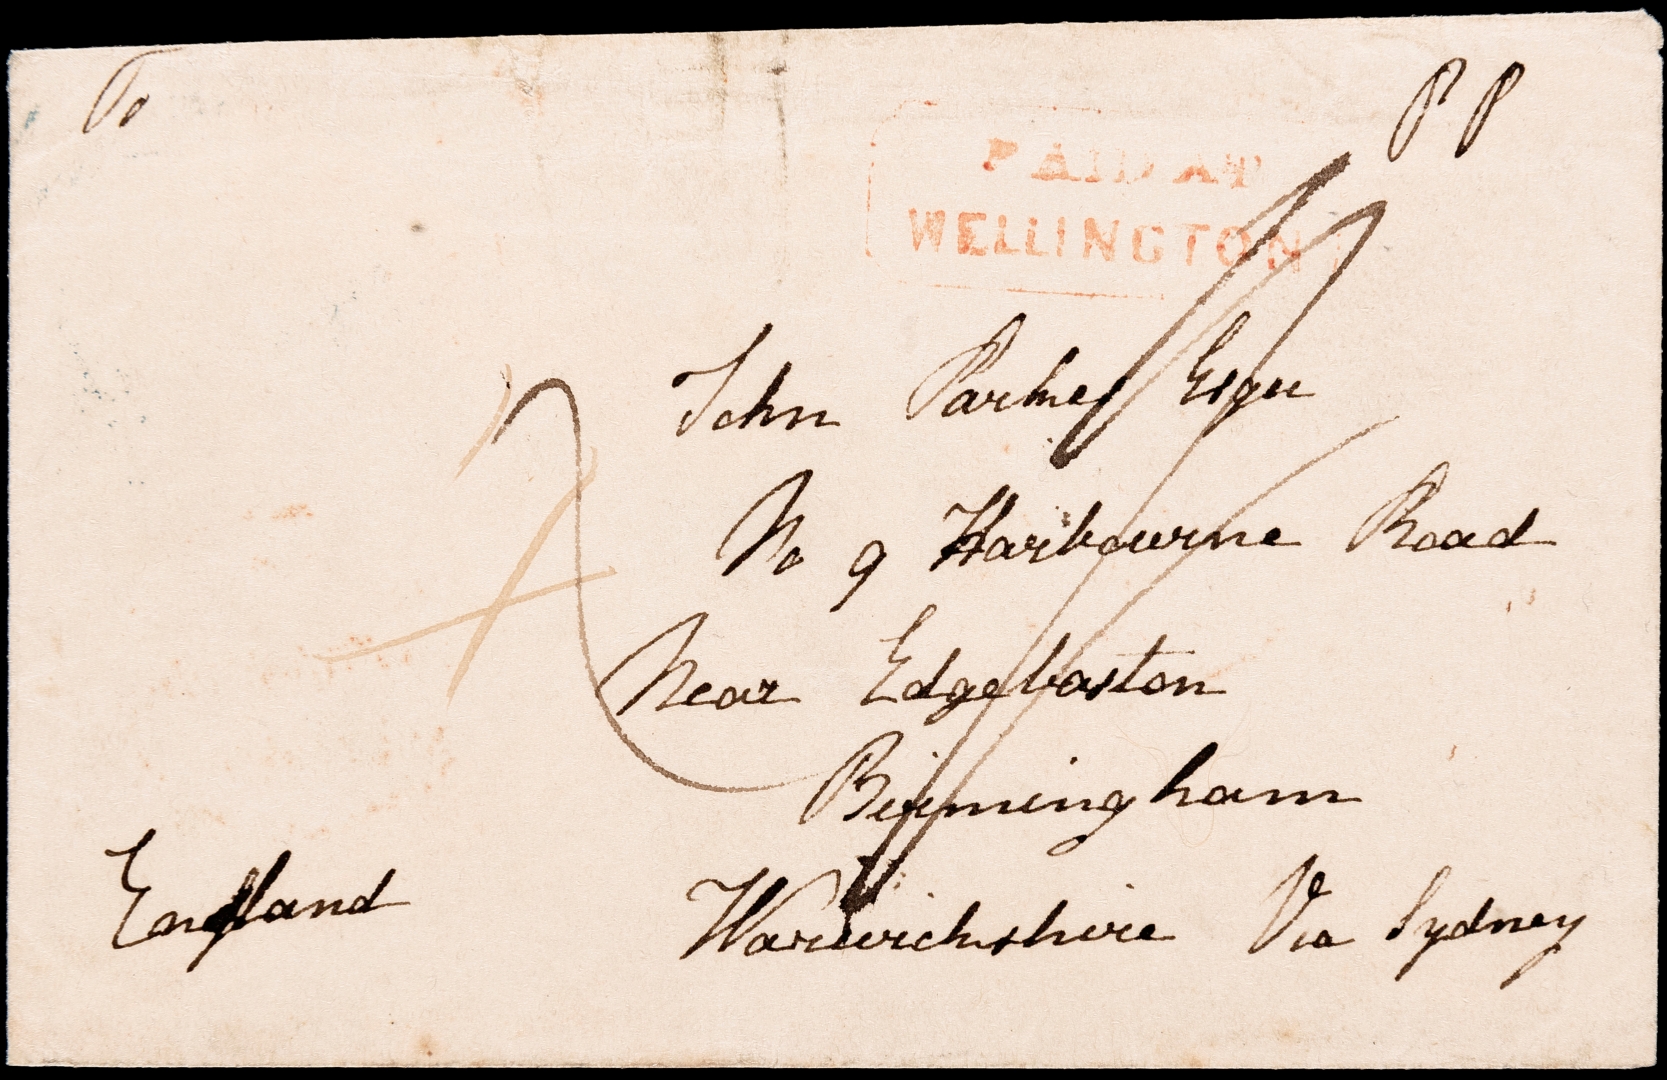 To
P P
PAID AT
WELLINGTON
John Parkes Esqr
No 9 Harbourne Road
Near Edgebaston
Birmingham
Warwickshire Via Sydney
England